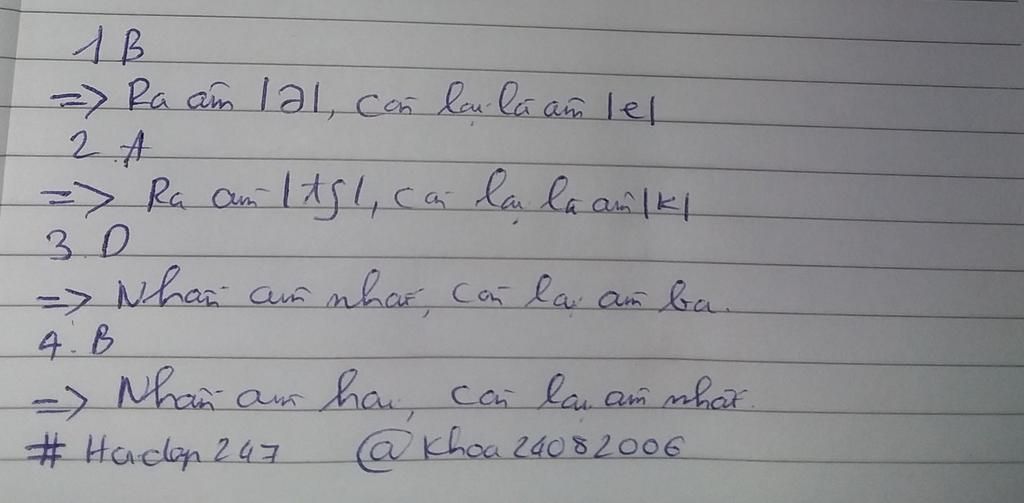 1 B
=> Ra âm /ə/, còn lại là âm /e/
2. A
=> Ra âm /tʃ/, còn lại là âm /k/
3. D
=> Nhấn âm nhất, còn lại âm ba.
4. B
=> Nhấn âm hai, còn lại âm nhất.
# Hoidap247 @khoa24082006